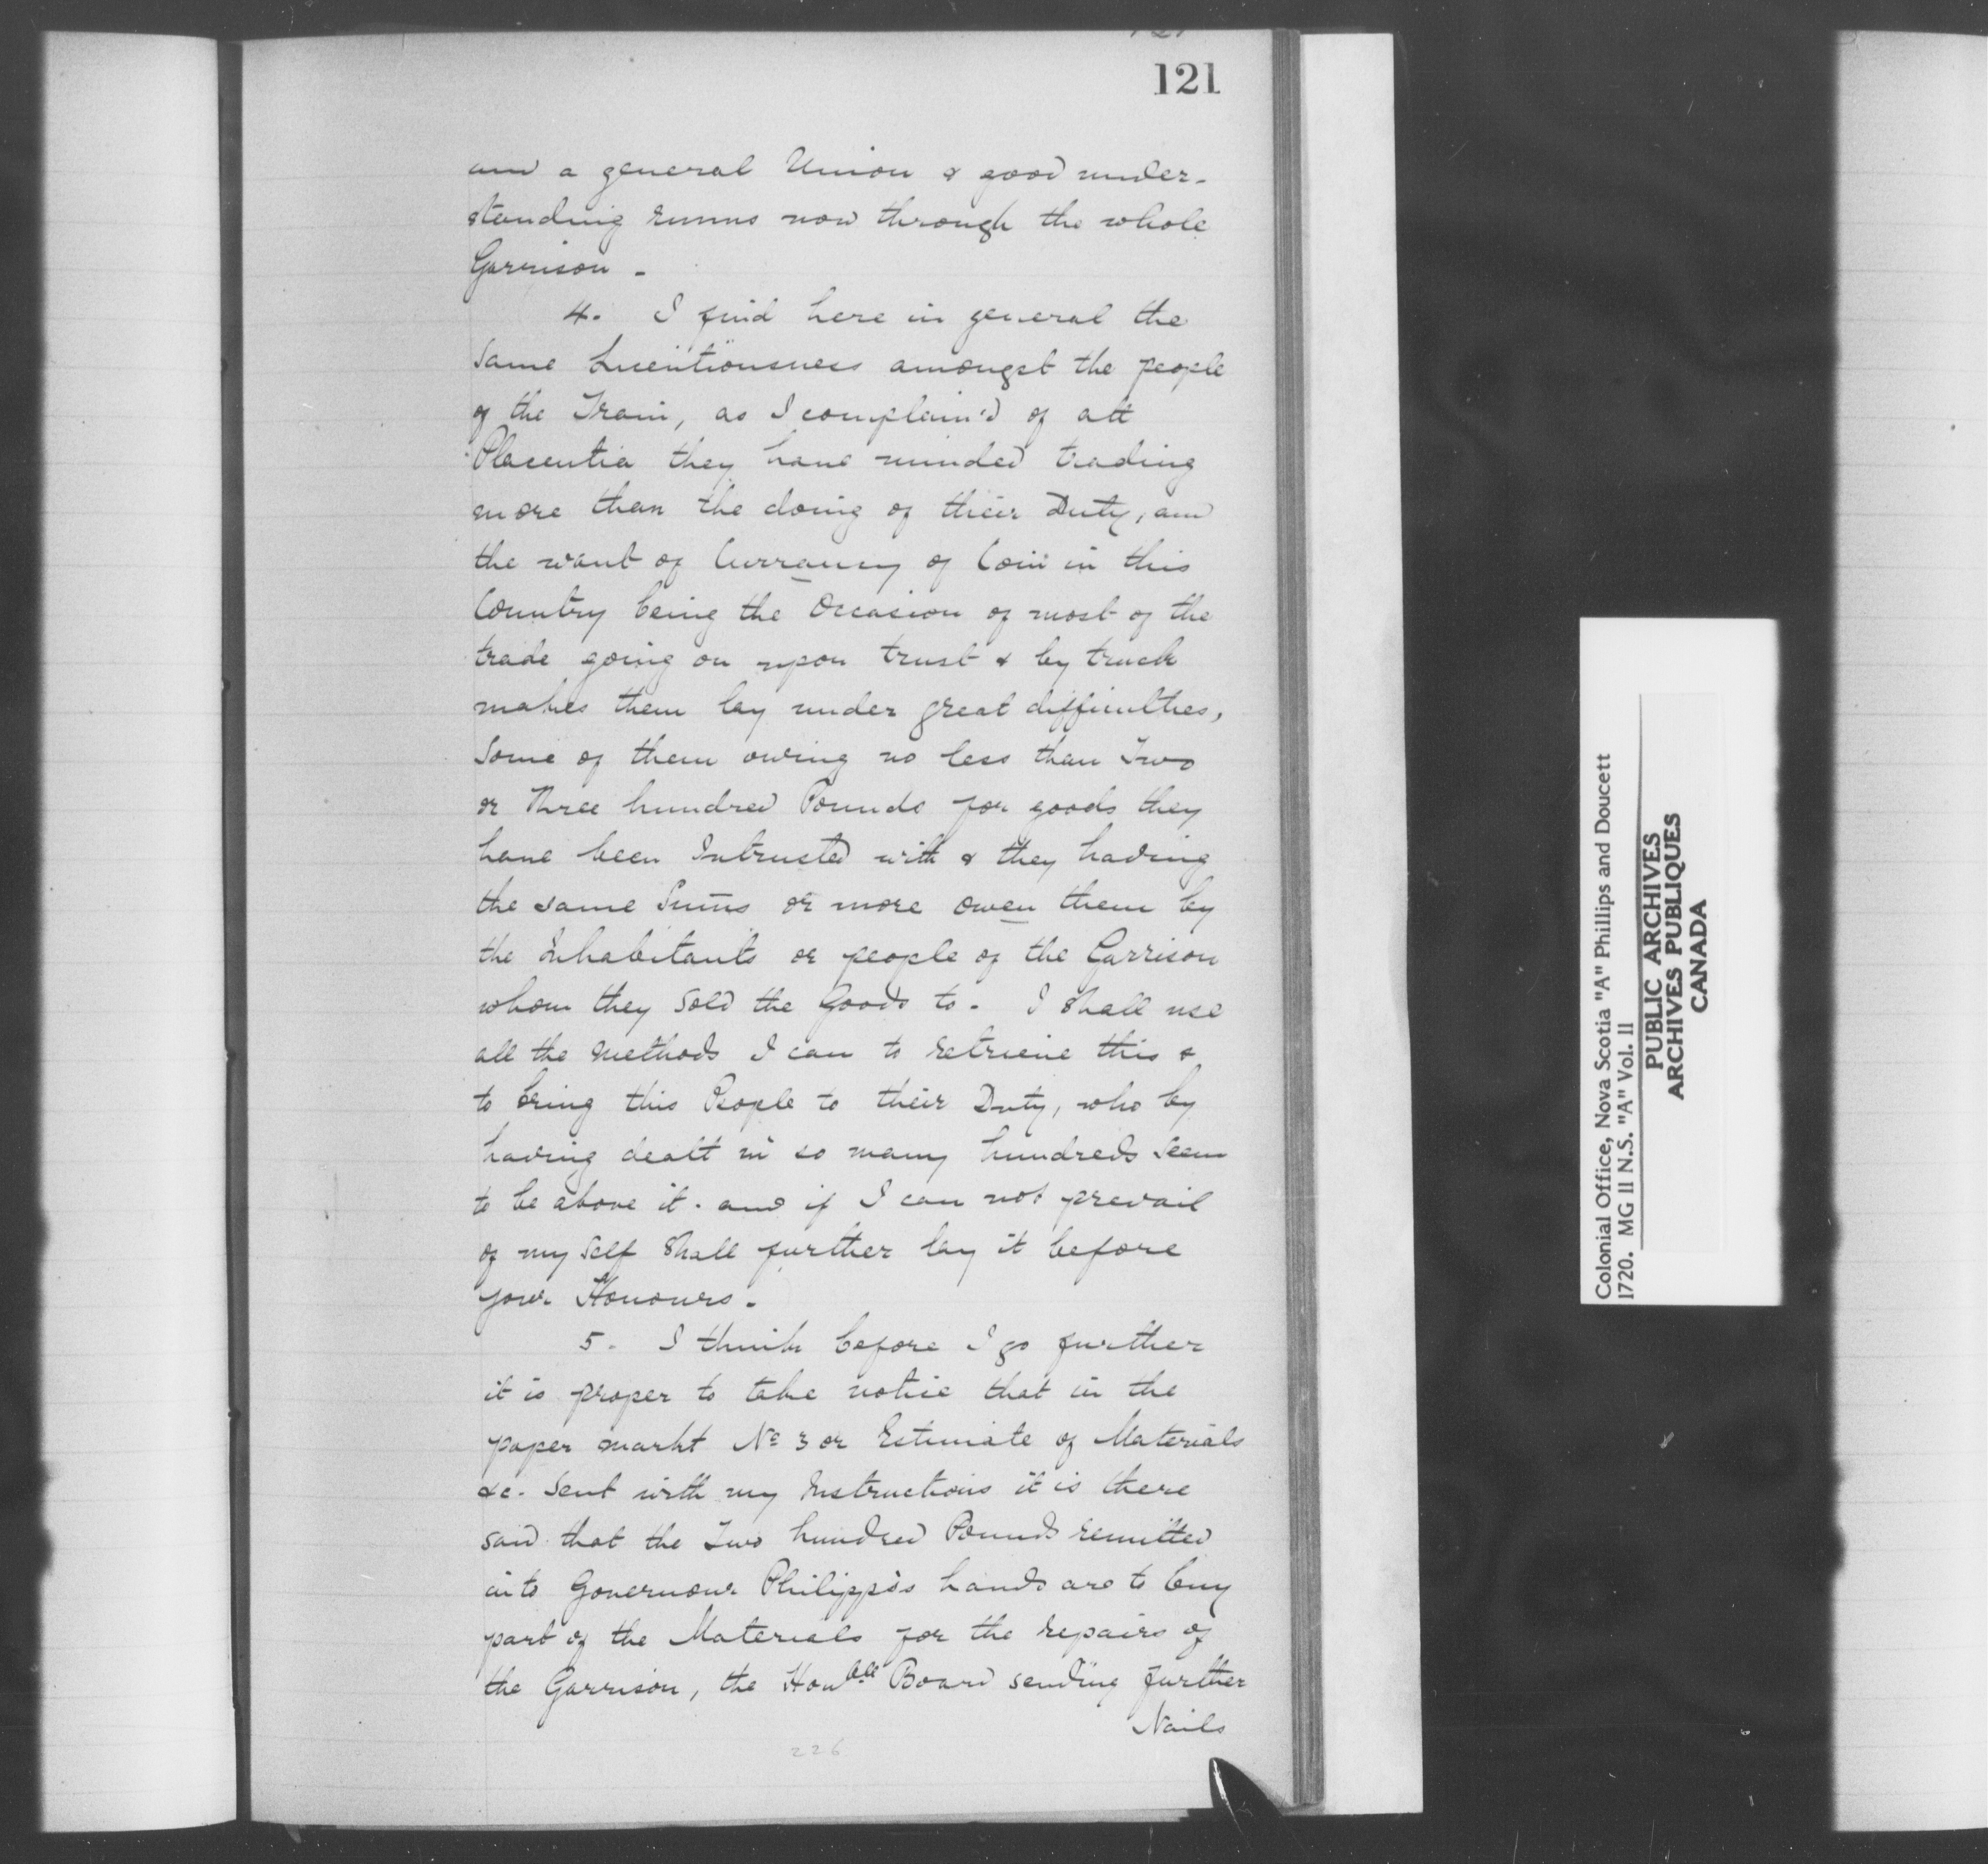 121
and a general Union & good under-
standing runns now through the whole
Garrison -
4. I find here in general the
same Licentiousness amongst the people
of the Train, as I complain'd of att
Placentia they have minded trading
more than the doing of their Duty, and
the want of Currancy of Coin in this
Country being the Occasion of most of the
trade going on upon trust & by truck
makes them lay under great difficulties,
Some of them owing no less than Two
or Three hundred Pounds for goods they
have been Intrusted with & they having
the same Sums or more owen them by
the Inhabitants or people of the Garrison
whom they Sold the Goods to. I Shall use
all the Methods I can to retrieve this &
to bring this People to their Duty, who by
having dealt in so many hundreds Seem
to be above it. and if I can not prevail
of my Self Shall further lay it before
your Honours.
5. I think before I go further
it is proper to take notice that in the
paper markt No 3 or Estimate of Materials
&c. Sent with my Instructions it is there
said that the Two hundred Pounds remitted
into Governour Philipps's hands are to buy
part of the Materials for the repairs of
the Garrison, the Honble Board sending further
Nails
226
Colonial Office, Nova Scotia "A" Phillips and Doucett
1720. MG 11 N.S. "A" Vol. 11
PUBLIC ARCHIVES
ARCHIVES PUBLIQUES
CANADA